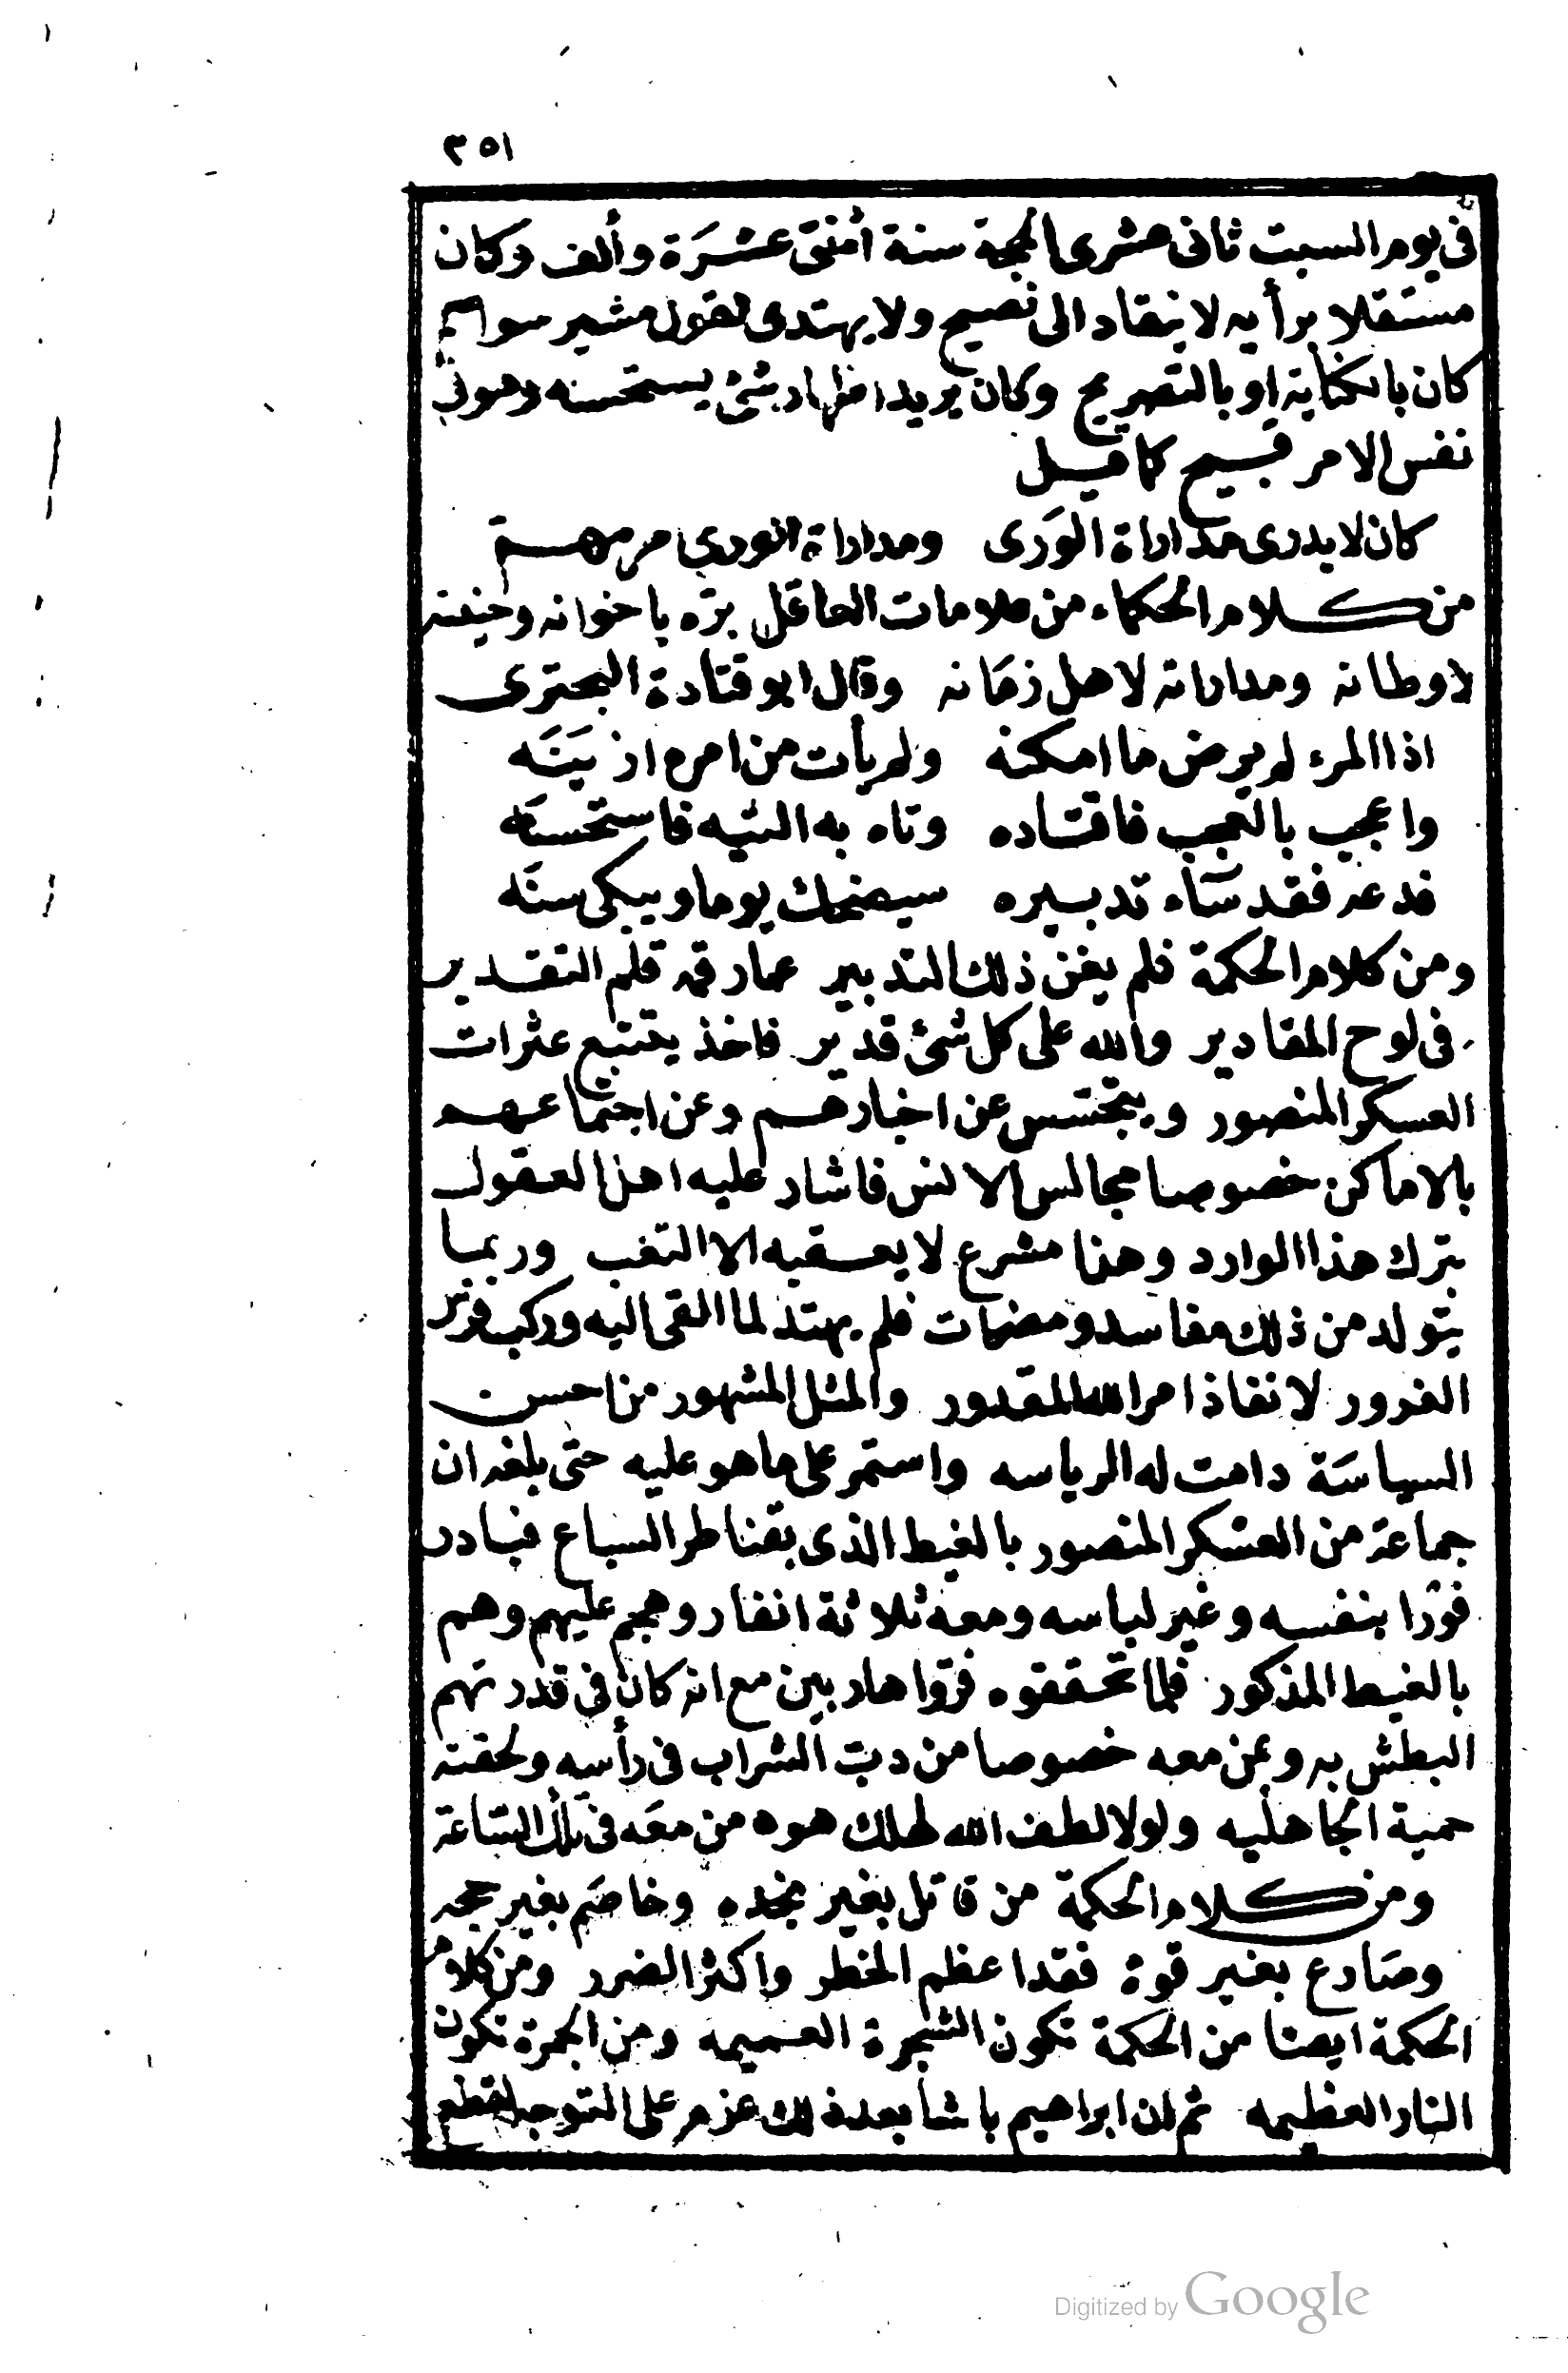 ٣٥١
فى يوم السبت ثانى عشرى الحجة سنة أثنتى عشرة وألف وكان
مستقلا برأيه لا ينقاد الى نصيح ولا يهتدى لقول مشير سواء
كان بالكناية او بالتصريح وكان يريد اظهار شئ يستحسنه وهو فى
نفس الامر قبيح كما قيل
كان لا يدرى مداراة الورى ومداراة الورى امر مهم
من كلام الحكماء من علامات العاقل برّه باخوانه وحنينه
لاوطانه ومداراته لاهل زمانه وقال ابو قتادة البحترى
اذا المرء لم يرض ما امكنه ولم يأت من امره ازينَه
واعجب بالعجب فاقتاده وتاه به التيه فاستحسنَه
فدعه فقد سَاء تدبيره سيضحك يوما ويبكى سنَه
ومن كلام الحكمة فلم يغن ذلك التدبير عمار قمه قلم التقدير
فى لوح المقادير والله على كل شئ قدير فاخذ يتتبع عثرات
العسكر المنصور ويتجسّس عن اخبارهم وعن اجتماعهم
بالاماكن خصوصا مجالس الانس فاشار عليه اهل العقول
بترك هذا الوارد وهذا مشرع لا يعقبه الا التعب وربما
يتولد من ذلك مفاسد ومضرات فلم يهتد لما القى اليه وركب فرس
الغرور لانفاذ امر الله المقدور والمثل المشهور من احسن
السياسَة دامت له الرياسه واستمر على ما هو عليه حتى بلغه ان
جماعة من العسكر المنصور بالغيط الذى بقناطر السباع فبادر
فورًا بنفسه وغير لباسه ومعه ثلاثة انفار وهجم عليهم وهم
بالغيط المذكور فلما تحققوه فرّوا هاربين مع انه كان فى قدرتهم
البطش به وبمن معه خصوصا من دبّ الشراب فى رأسه ولحقته
حمية الجاهليه ولولا لطف الله لهلك هو ومن معَه فى تلك السّاعة
ومن كلام الحكمة من قاتل بغير نجده وخاصَم بغير حجه
وصَارع بغير قوة فقد اعظم الخطر واكثر الضرر ومن كلام
الحكمة ايضا من الحكمة تكون الشجرة العميمه ومن الجمرة تكون
النار العظيمه ثم ان ابراهيم باشا بعد ذلك عزم على التوجه لقطع
Digitized by Google